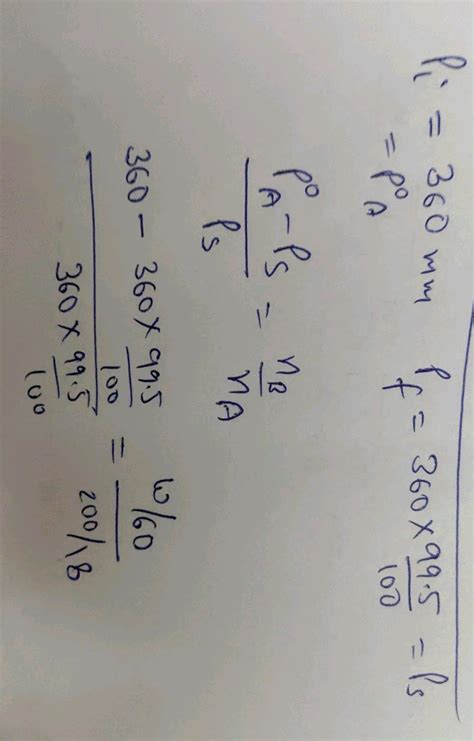 Pi = 360 mm    Pf = 360 × 99.5/100 = Ps
= P°A
(P°A − Ps)/Ps = nB/nA
(360 − 360 × 99.5/100)/(360 × 99.5/100) = (w/60)/(200/18)